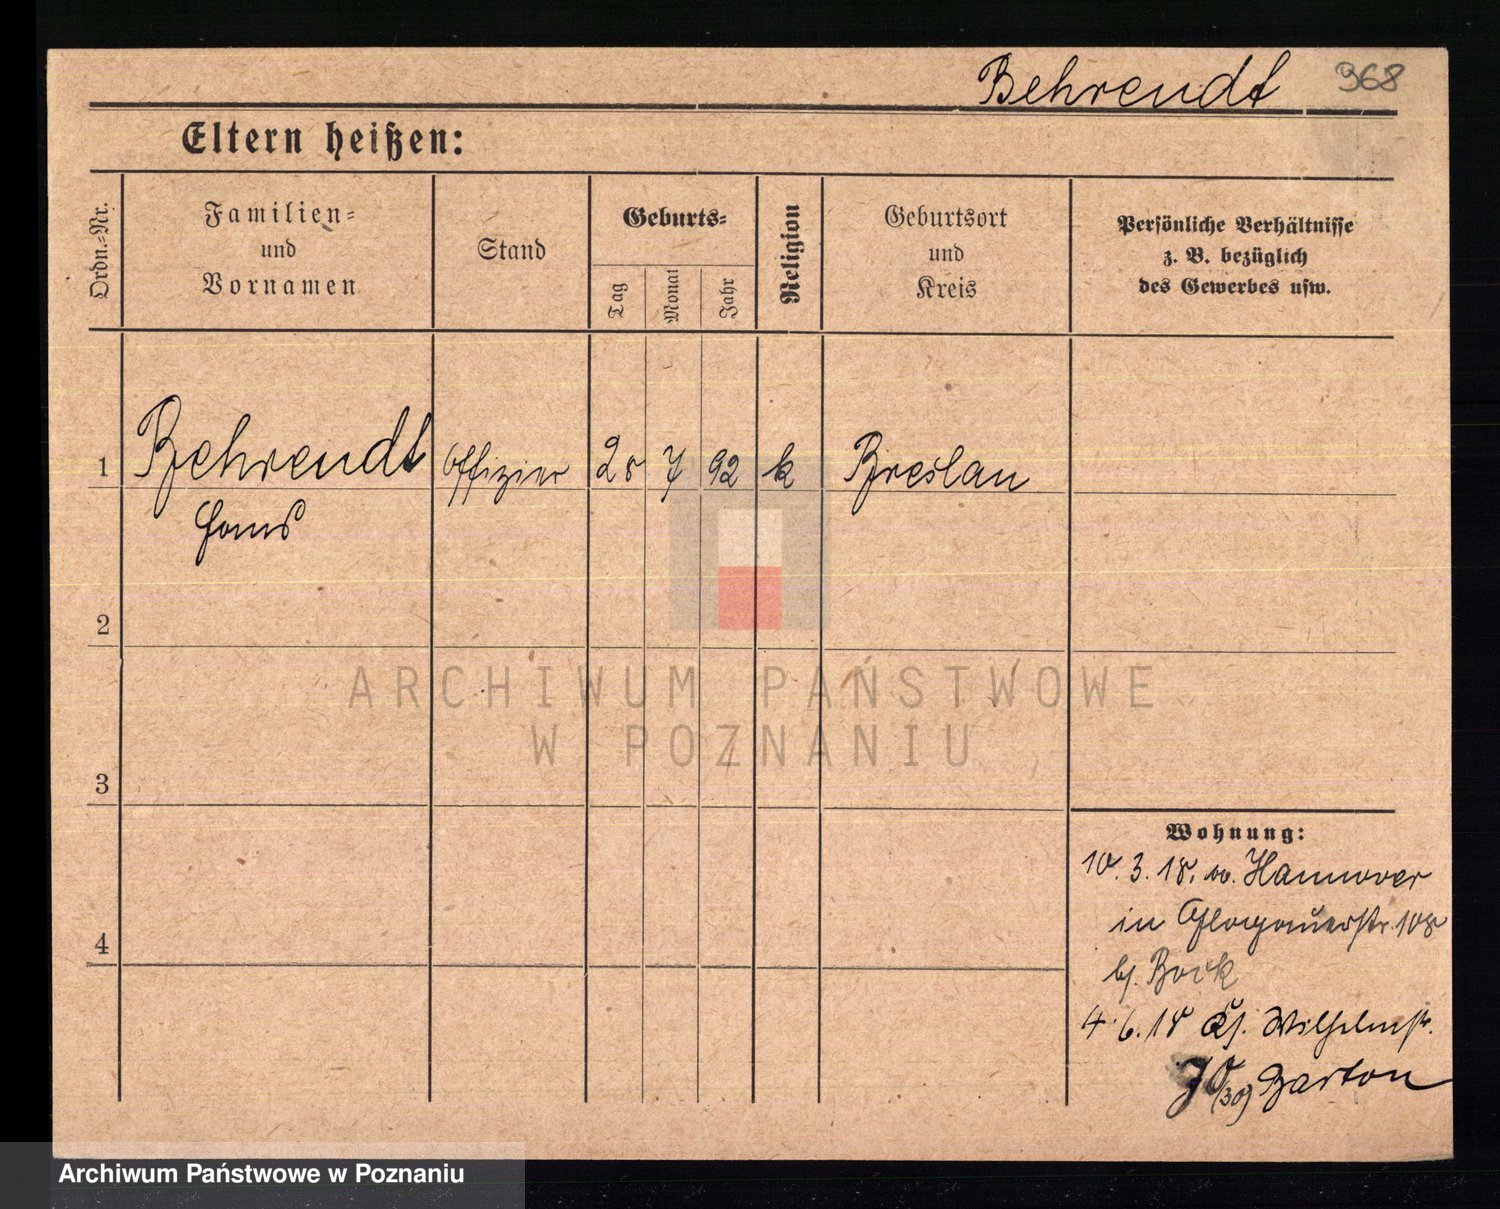 Behrendt 968
Eltern heißen:
Ordn.-Nr.
Familien-
und
Vornamen
Stand
Geburts-
Tag
Monat
Jahr
Religion
Geburtsort
und
Kreis
Persönliche Verhältnisse
z. B. bezüglich
des Gewerbes usw.
1 Behrendt Offizier 28 7 92 k Breslau
Hans
2
3
4
ARCHIWUM PAŃSTWOWE
W POZNANIU
Wohnung:
10. 3. 18. v. Hannover
in Glogauerstr. 108
b. Bock
4. 6. 18 Wilhelmstr.
70 (30) Barton
Archiwum Państwowe w Poznaniu